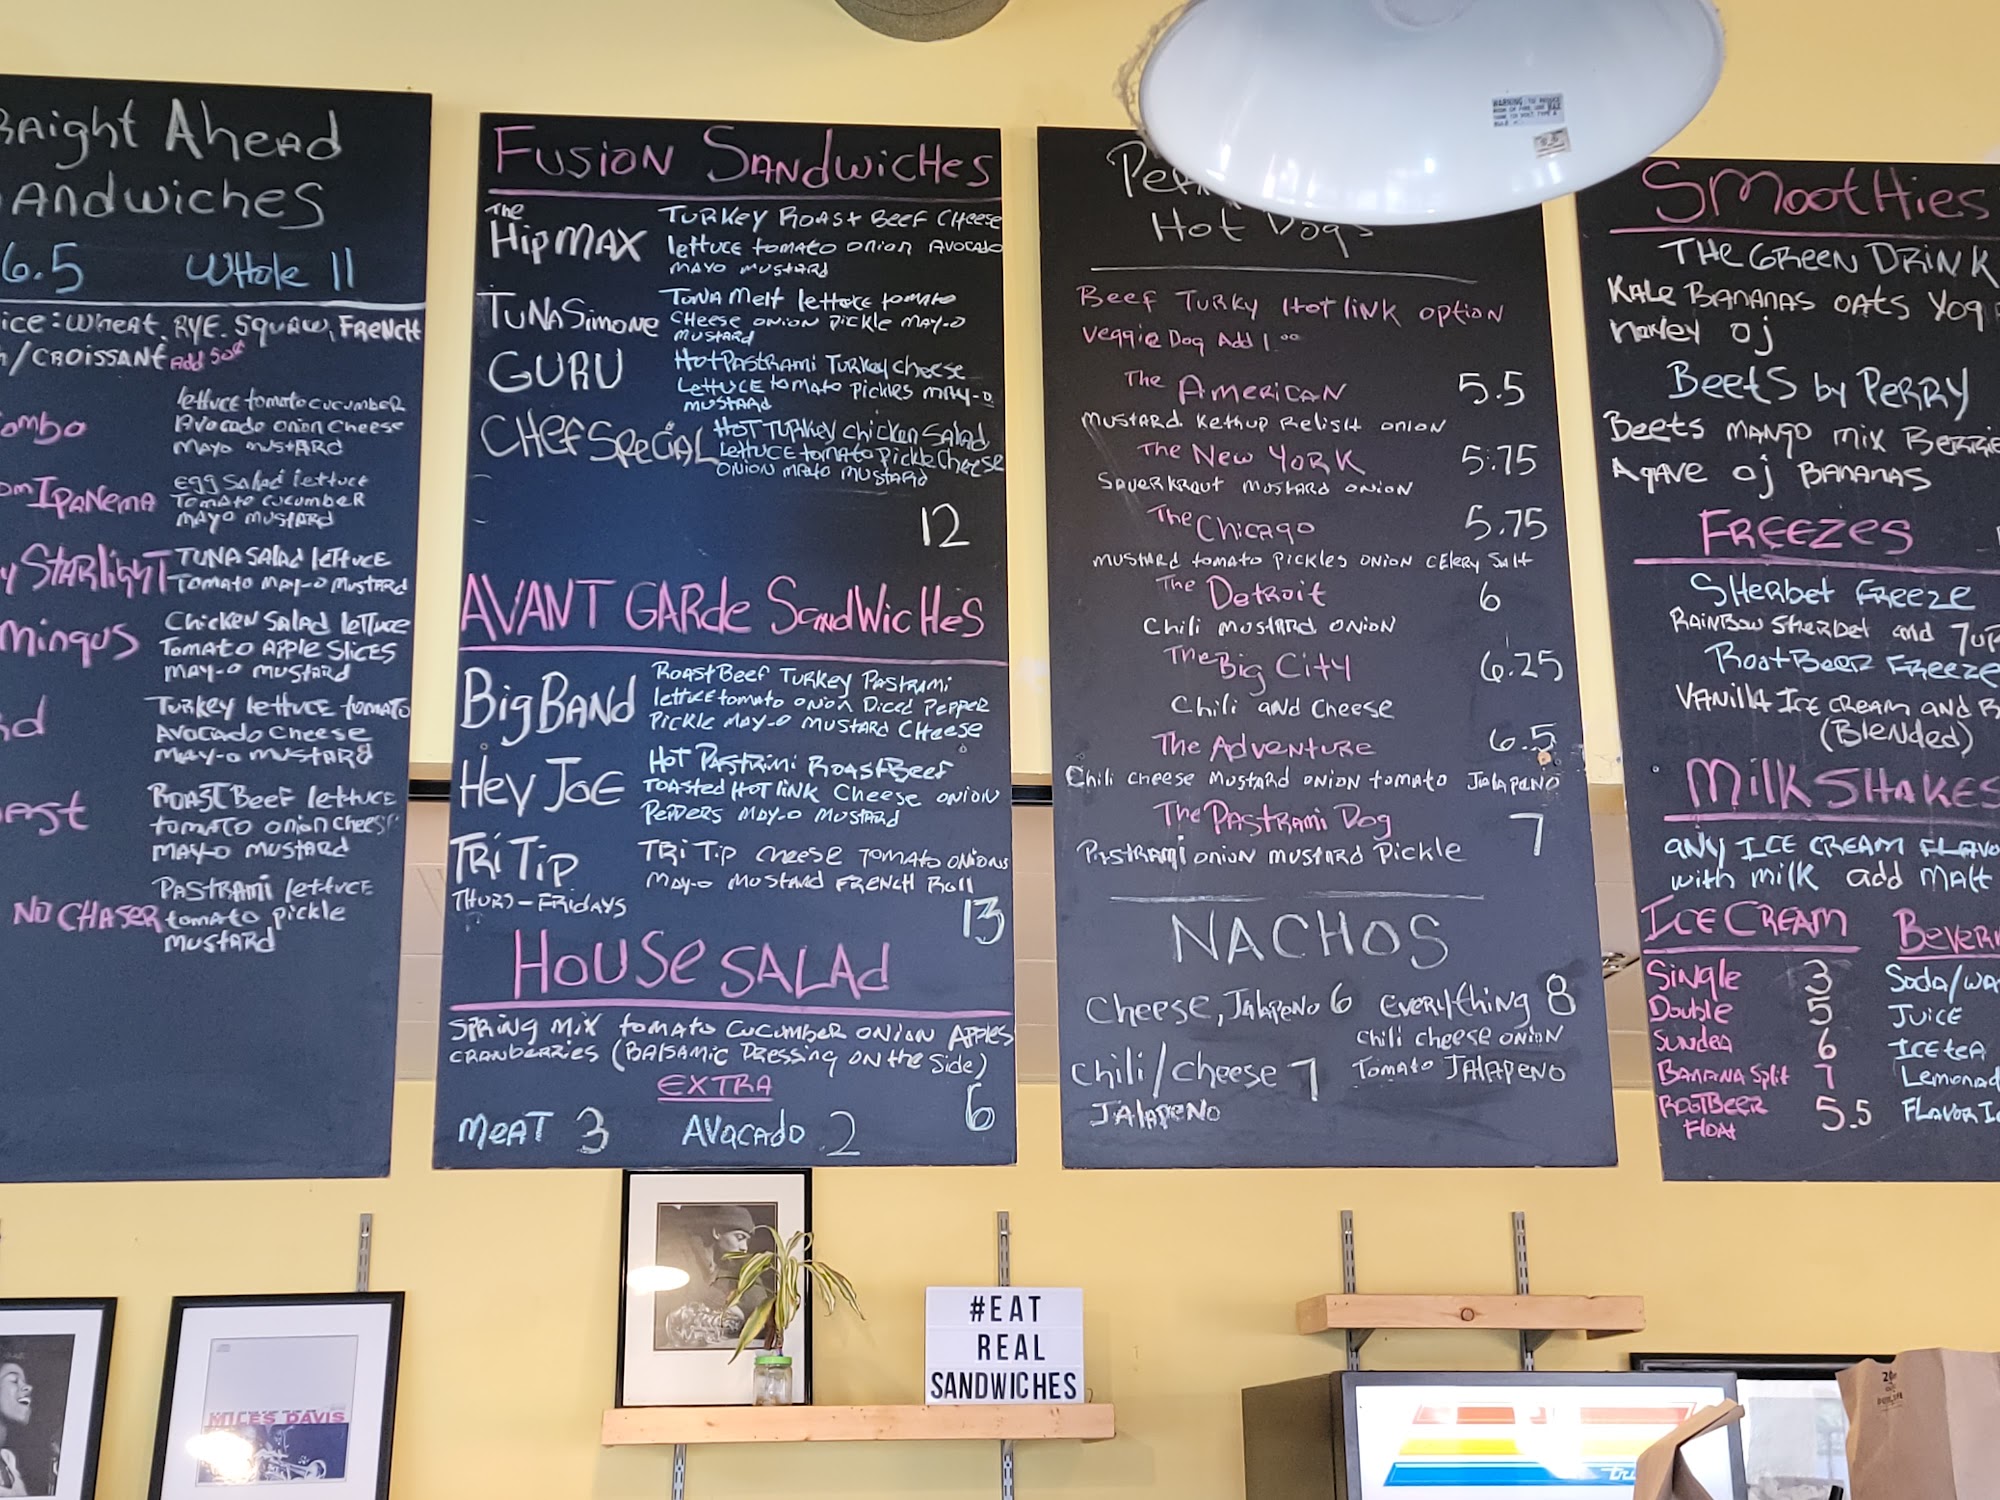 Ahead
Sandwiches
6.5 Whole 11
Wheat, RYE. Squaw, FRENCH
/CROISSANT Add 50¢
lettuce tomato cucumber
Avocado onion cheese
MAYO MUSTARD
IPANEMA
egg salad lettuce
Tomato cucumber
MAYO MUSTARD
STARLIGHT
TUNA SALAD LETTUCE
Tomato MAY-O MUSTARD
Mingus
Chicken Salad lettuce
Tomato Apple Slices
MAY-O MUSTARD
Turkey lettuce tomato
Avocado Cheese
MAY-O MUSTARD
ROAST Beef lettuce
tomato onion cheese
MAY-O MUSTARD
NO CHASER
PASTRAMI lettuce
tomato pickle
MUSTARD
FUSION SANDWICHES
The HipMAX
TURKEY ROAST BEEF CHEESE
lettuce tomato onion AVOCADO
MAYO MUSTARD
TUNA Simone
TUNA MELT lettuce tomato
CHEESE ONION PICKLE MAY-O
MUSTARD
GURU
Hot PASTRAMI TURKEY CHEESE
LETTUCE tomato pickles MAY-O
MUSTARD
CHEF SPECIAL
HOT TURKEY Chicken SALAD
LETTUCE tomato PICKLE Cheese
ONION MAYO MUSTARD
12
AVANT GARde SANdWicHes
Big BANd
ROAST BEEF TURKEY PASTRAMI
lettuce tomato onion Diced PEPPER
PICKLE MAY-O MUSTARD CHEESE
Hey JOE
HOT PASTRIMI ROAST BEEF
TOASTED HOT LINK CHEESE ONION
PEPPERS MAY-O MUSTARD
TRI TIP
THURS-FRIDAYS
TRI TIP CHEESE TOMATO ONIONS
MAY-O MUSTARD FRENCH Roll
13
HOUSE SALAd
SPRING MIX tomato CUCUMBER ONION Apples
CRANBERRIES (BALSAMIC DRESSING ON the Side)
EXTRA
6
MEAT 3 AVOCADO 2
Hot Dogs
Beef TURKY Hot link option
Veggie Dog Add 1.00
The American 5.5
MUSTARD KETHUP RELISH ONION
The New YORK 5.75
SAUERKRAUT MUSTARD ONION
The Chicago 5.75
MUSTARD tomato PICKLES ONION CELERY SALT
The Detroit 6
Chili MUSTARD ONION
The Big City 6.25
Chili and Cheese
The Adventure 6.5
Chili cheese MUSTARD ONION tomato JALAPENO
The PASTRAMI Dog 7
PASTRAMI ONION MUSTARD PICKLE
NACHOS
Cheese, JALAPENO 6 EVERYTHING 8
Chili cheese onion
Tomato JALAPENO
Chili/Cheese 7
JALAPENO
SMOOTHIES
THE GREEN DRINK
KALE BANANAS OATS
Honey OJ
Beets by PERRY
Beets MANGO MIX
AGAVE OJ BANANAS
FREEZES
SHERBET FREEZE
RAINBOW SHERBET and 7UP
Root BEER FREEZE
VANILLA ICE CREAM AND
(Blended)
MILK SHAKES
ANY ICE CREAM
with milk add malt
ICE CREAM
Single 3
Double 5
SUNDEA 6
BANANA Split 7
ROOTBEER 5.5
Float
Soda/
JUICE
ICE teA
#EAT
REAL
SANDWICHES
MILES DAVIS